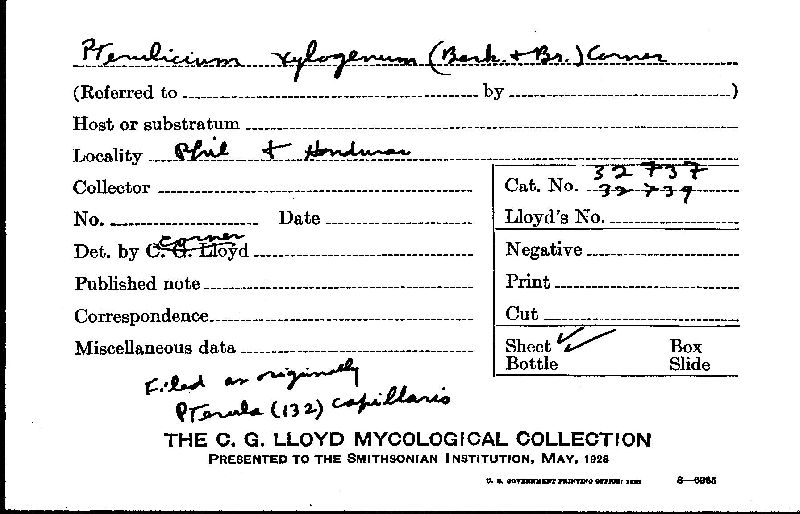 Pterulicium xylogenum (Berk. + Br.) Corner
(Referred to by )
Host or substratum
Locality Phil + Honduras
Collector
Cat. No. 32737
32739
No. Date
Lloyd's No.
Det. by C. G. Lloyd Corner
Negative
Published note
Print
Correspondence
Cut
Miscellaneous data
Sheet ✓✓ Box
Bottle Slide
Filed as originally
Pterula (132) capillaris
THE C. G. LLOYD MYCOLOGICAL COLLECTION
PRESENTED TO THE SMITHSONIAN INSTITUTION, MAY, 1928
U. S. GOVERNMENT PRINTING OFFICE: 8—6965